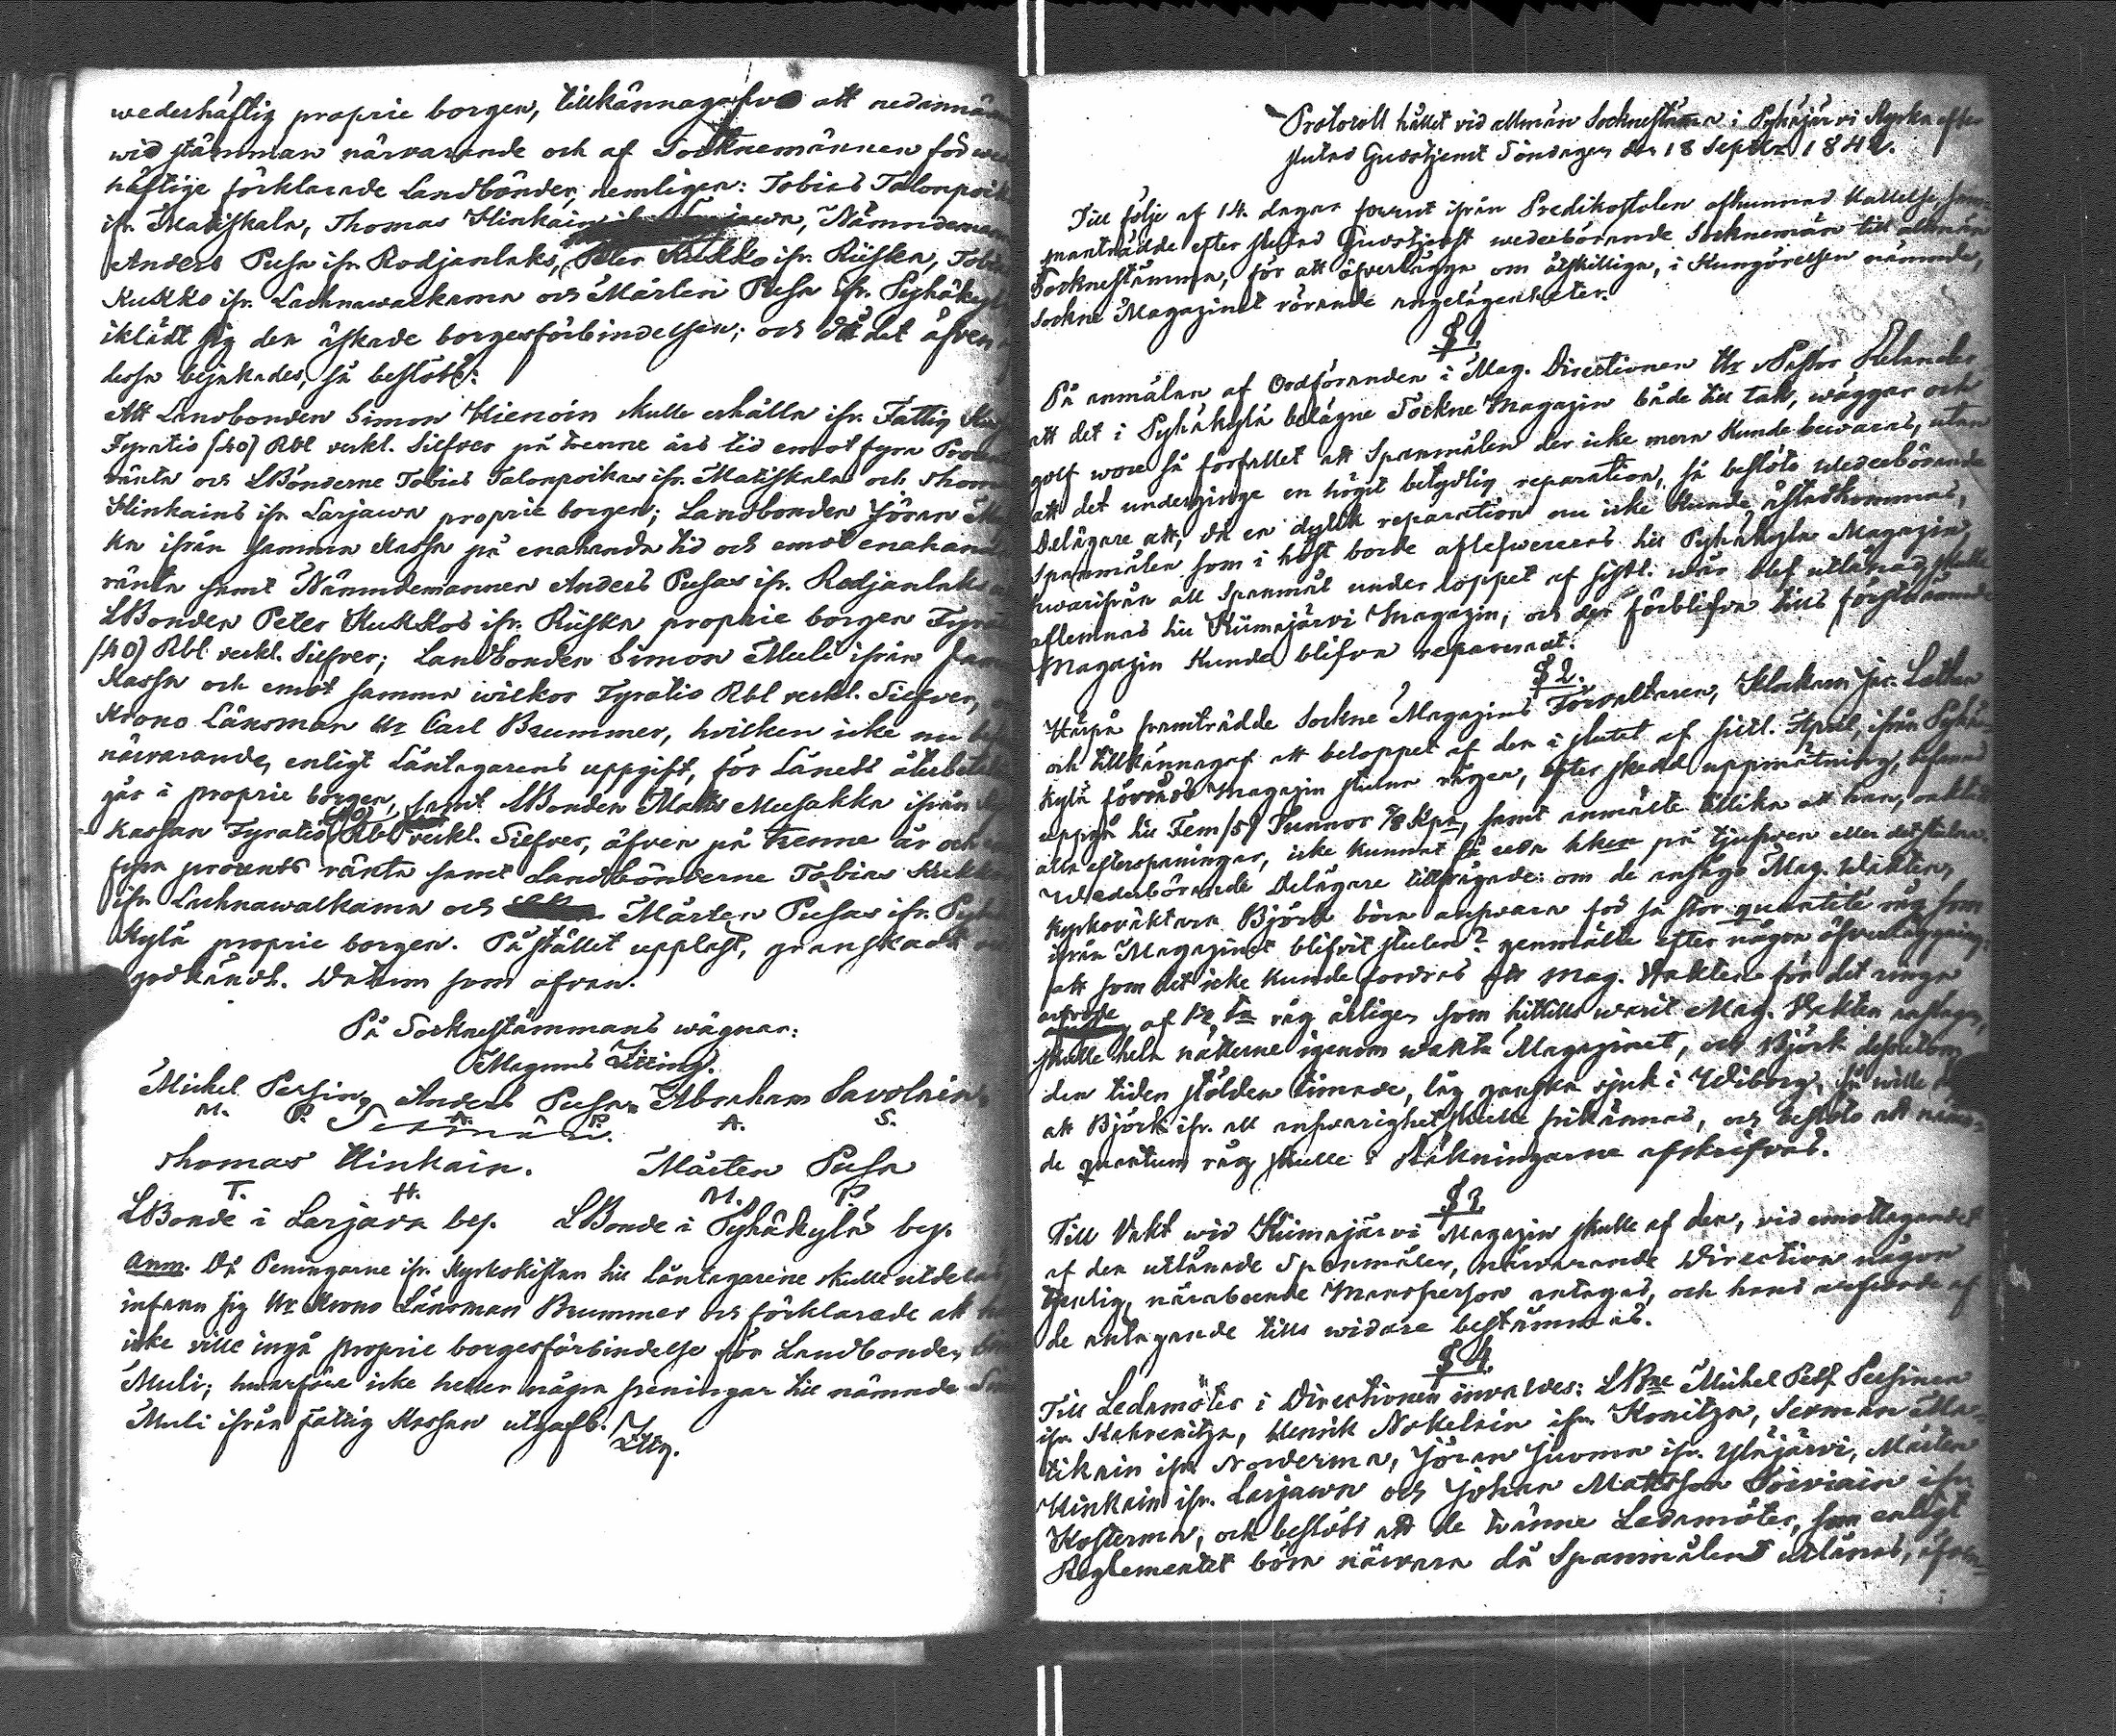 wederhäftig proprie borgen, tillkännagafvs att nedannämn
wid stämman närvarande och af Socknemännen för weder
häftige förklarade Landbönder, nemligen: Tobias Talonpoika
ifr. Matiskala, Thomas Hinkain, Nämndeman
Anders Pusa ifr. Rodjanlaks, Peter Kukko ifr. Riiska, Tobias
Kukko ifr. Lachnawalkama och Mårten Pusa ifr. Pyhäkylä
iklädt sig den äskade borgesförbindelsen; och då det äfven af
dessa bejakades, så beslöts:
Att Landbonden Simon Hienoin skulle erhålla ifr. Fattig Kass
Fyratio (40) Rbl verkl. Silfver på trenne års tid emot fyra Procents
ränta och LBönderne Tobias Talonpoikas ifr. Matiskala och Thomas
Hinkains ifr. Larjawa proprie borgen; Landbonden Jöran
ka ifrån samma Kassa på enahanda tid och emot enahanda
ränta samt Nämndemannen Anders Pusas ifr. Rodjanlaks o
LBonden Peter Kukkos ifr. Riiska proprie borgen Fyratio
(40) Rbl verkl. Silfver; Landbonden Simon Muli ifrån samma
Kassa och emot samma wilkor Fyratio Rbl verkl. Silfver, o
Krono Länsman Hr Carl Brummer, hvilken icke nu
närvarande, enligt Låntagarens uppgift, för Lånets återbetal
går i proprie borgen, samt LBonden Matts Musakka ifrån
Kassan Fyratio (40) Rbl verkl. Silfver, äfven på trenne år och
fyra procents ränta samt Landbönderne Tobias Kukkos
ifr. Lachnawalkama och Mårten Pusas ifr. Pyhä
kylä proprie borgen. På stället uppläst, granskadt och
godkändt. Datum som ofvan.
På Socknestämmans wägnar:
Magnus Litting.
Michel Persin, Anders Pusa, Abraham Savolain,
M. P. A. P. A. S.
Sexmän
Thomas Hinkain. Mårten Pusa
T. H. M. P.
LBonde i Larjava by. LBonde i Pyhäkylä by.
Anm. Då Peningarne ifr. Kyrkokistan till Låntagarene skulle utdelas
infann sig Hr Krono Länsman Brummer och förklarade att han
icke ville ingå proprie borgesförbindelse för Landbonden Sim
Muli; hwarföre icke heller några peningar till nämnde Sim
Muli ifrån Fattig Kassan utgafs.
Lttg.
Protocoll hållet vid allmän Socknestämma i Pyhäjärvi Kyrka efter
slutad Gudstjenst Söndagen den 18 Septbr 1842.
Till följe af 14. dagar förut ifrån Predikostolen afkunnad Kallelse, sam-
manträdde efter slutad Gudstjenst wederbörande Socknemän till allmän
Socknestämma, för att öfverlägga om åtskilliga, i Kungörelsen nämnde,
Sockne Magazinet rörande angelägenheter.
§ 1.
På anmälan af Ordföranden i Mag. Directionen Hr Pastor Relander
att det i Pyhäkylä belägne Sockne Magazin både till tak, wäggar och
golf wore så förfallet att Spanmålen der icke mera kunde bewaras, utan
att det undergingo en högst betydlig reparation, så beslöto Wederbörande
Delägare att, då en dylik reparation nu icke kunde åstadkommas,
Spanmålen som i höst borde aflefwereras till Pyhäkylä Magazin,
hwarifrån all Spanmål under loppet af sistl. wår blef utlånad, skulle
aflemnas till Kiimajärvi Magazin, och der förblifva tills förstnämnde
Magazin kunde blifva reparerat.
§ 2.
Härpå framträdde Sockne Magazins Förvaltaren, Klockaren Joh. Lethen
och tillkännagaf att beloppet af den i slutet af sistl. April, ifrån Pyhä-
kylä förråds Magazin stulna rågen, efter skedd uppmätning, befanns
uppgå till Fem (5) Tunnor 7/8 Kpa, samt anmälte tillika att han, oaktadt
alla efterspaningar, icke kunnat få reda hken på tjufven eller det stulna.
Wederbörande Delägare tillfrågade: om de ansågo Mag. Wakten,
Kyrkoväktaren Björk böra answara för så stor quantité råg som
ifrån Magazinet blifvit stulen? genmälte efter någon öfverläggning:
att som det icke kunde fordras att Mag. Wakten för det ringa
arfvode af 1/2 Tn råg årligen som hittills warit Mag. Wakten anslagen,
skulle hela nätterne igenom wakta Magazinet, och Björk dessutom
den tiden stölden timade, låg ganska sjuk i Wiborg, så wille de
att Björk ifr. all answarighet skulle frikännas, och beslöto att nämn-
de quantum råg skulle i Räkningarne afskrifvas.
§ 3.
Till Vakt wid Kiimajärvi Magazin skulle af den, vid emottagandet
af den utlånade Spanmålen, närvarande Direction någon
tjenlig, näraboende Mansperson antagas, och hans arfvode af
de antagande tills widare bestämmas.
§ 4.
Till Ledamöter i Directionen invaldes: LBne Michel Pehf Pessinen
ifr. Kahvenitza, Henrik Nokelain ifr. Konitza, Sexman Mar-
tikain ifr. Noiderma, Jöran Juoma ifr. Yläjärvi, Mårten
Hinkain ifr. Larjawa och Johan Mattsson Toiviain ifr.
Kosterma, och beslöts att de twänne Ledamöter, som enligt
Reglementet böra närvara då Spannmålens utlånas, äfven